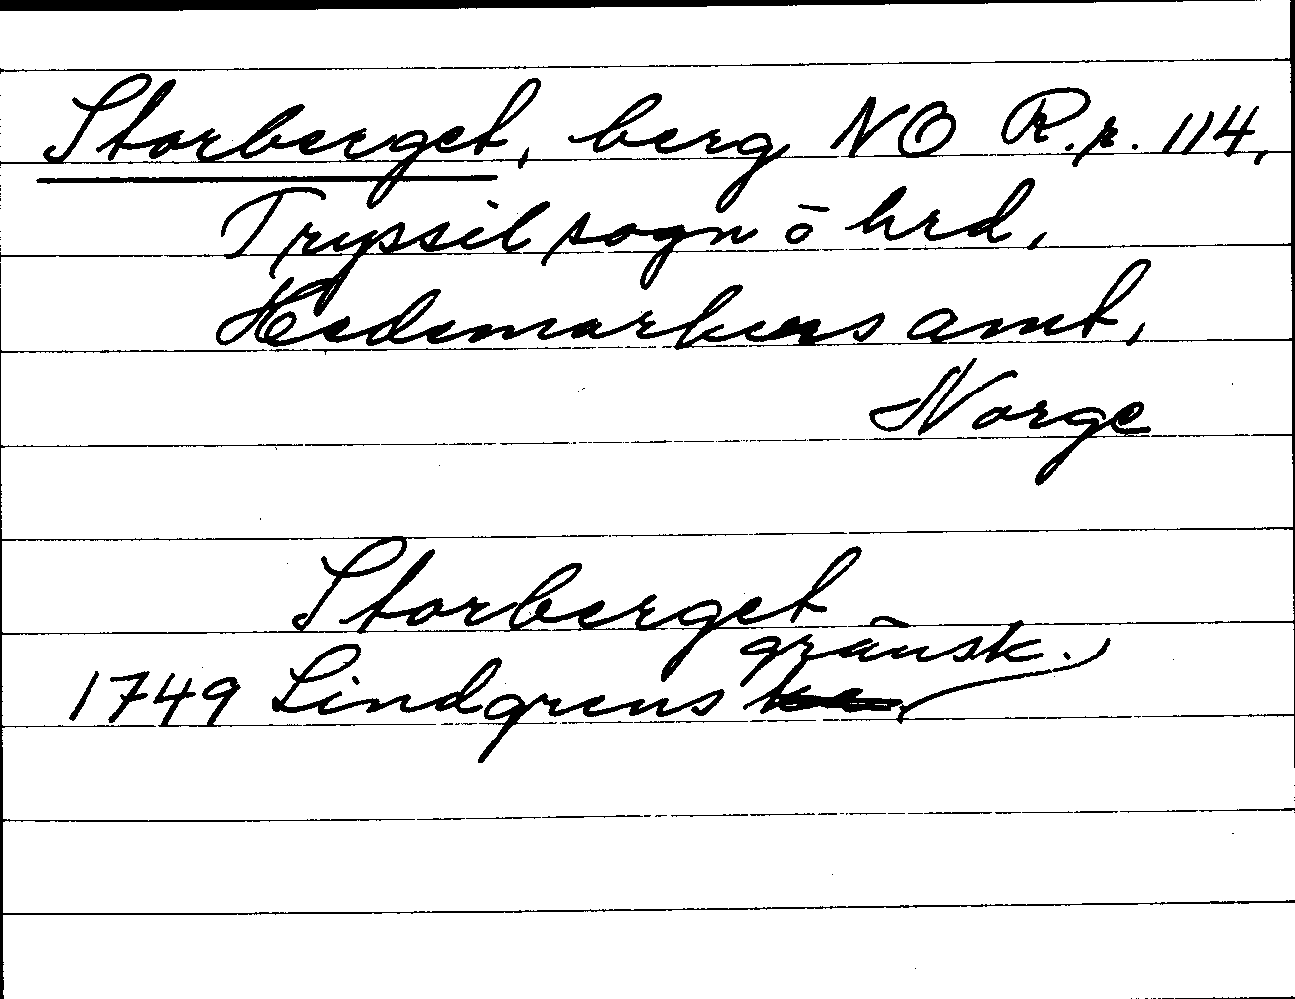 Storberget, berg NO R.r. 114,
Tryssil sogn ō hrd,
Hedemarkens amt,
Norge
Storberget
gränsk.
1749 Lindgrens